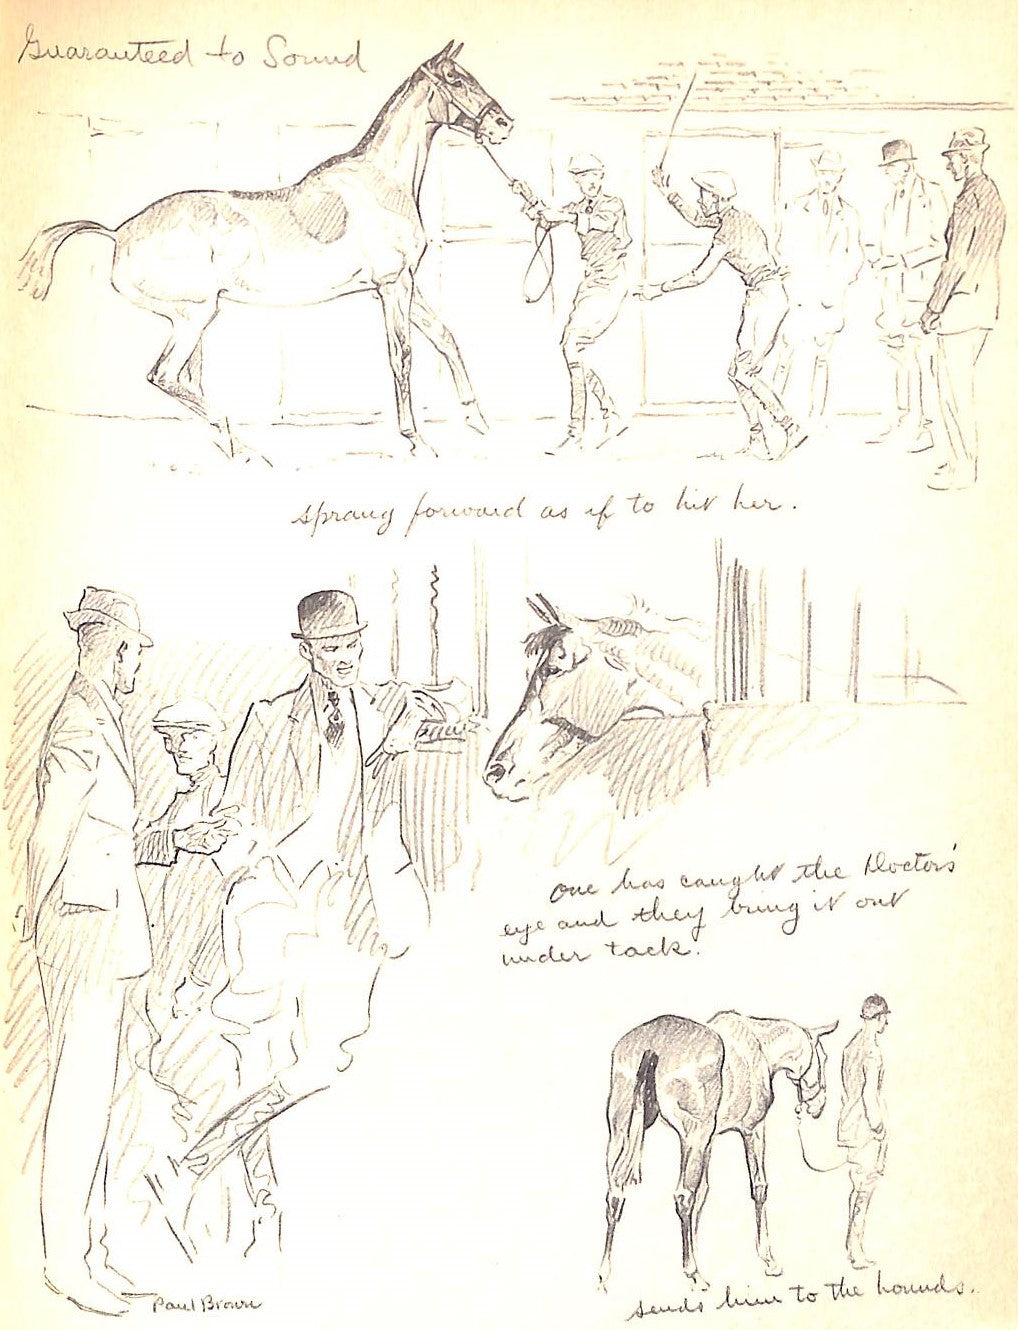 Guaranteed to Sound
sprang forward as if to hit her.
one has caught the Doctor's
eye and they bring it out
under tack.
sends him to the hounds.
Paul Brown